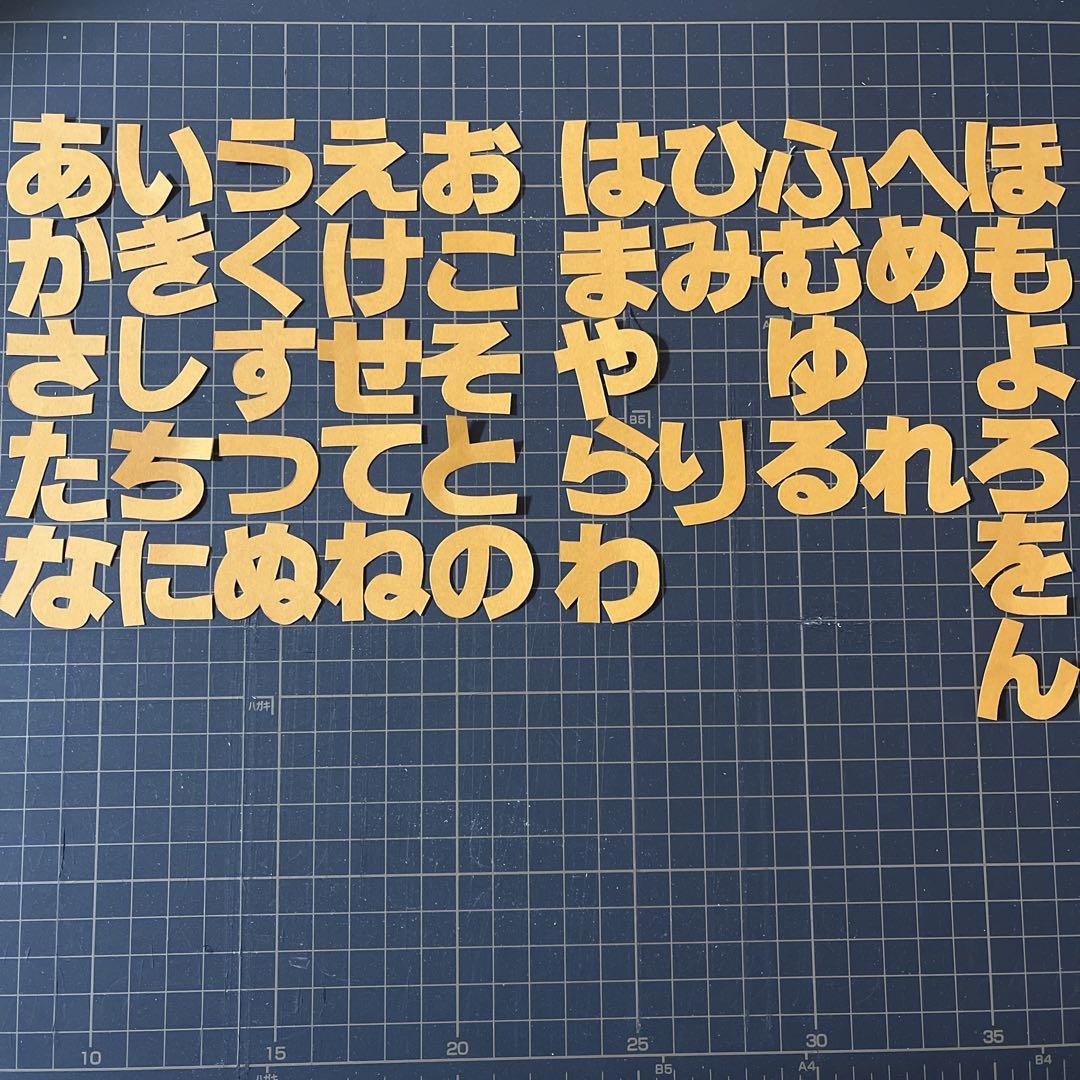 あいうえお
かきくけこ
さしすせそ
たちつてと
なにぬねの
はひふへほ
まみむめも
やゆよ
らりるれろ
わを
ん
B5
ハガキ
10 15 20 25 30 35
ハガキ B5 A4 B4